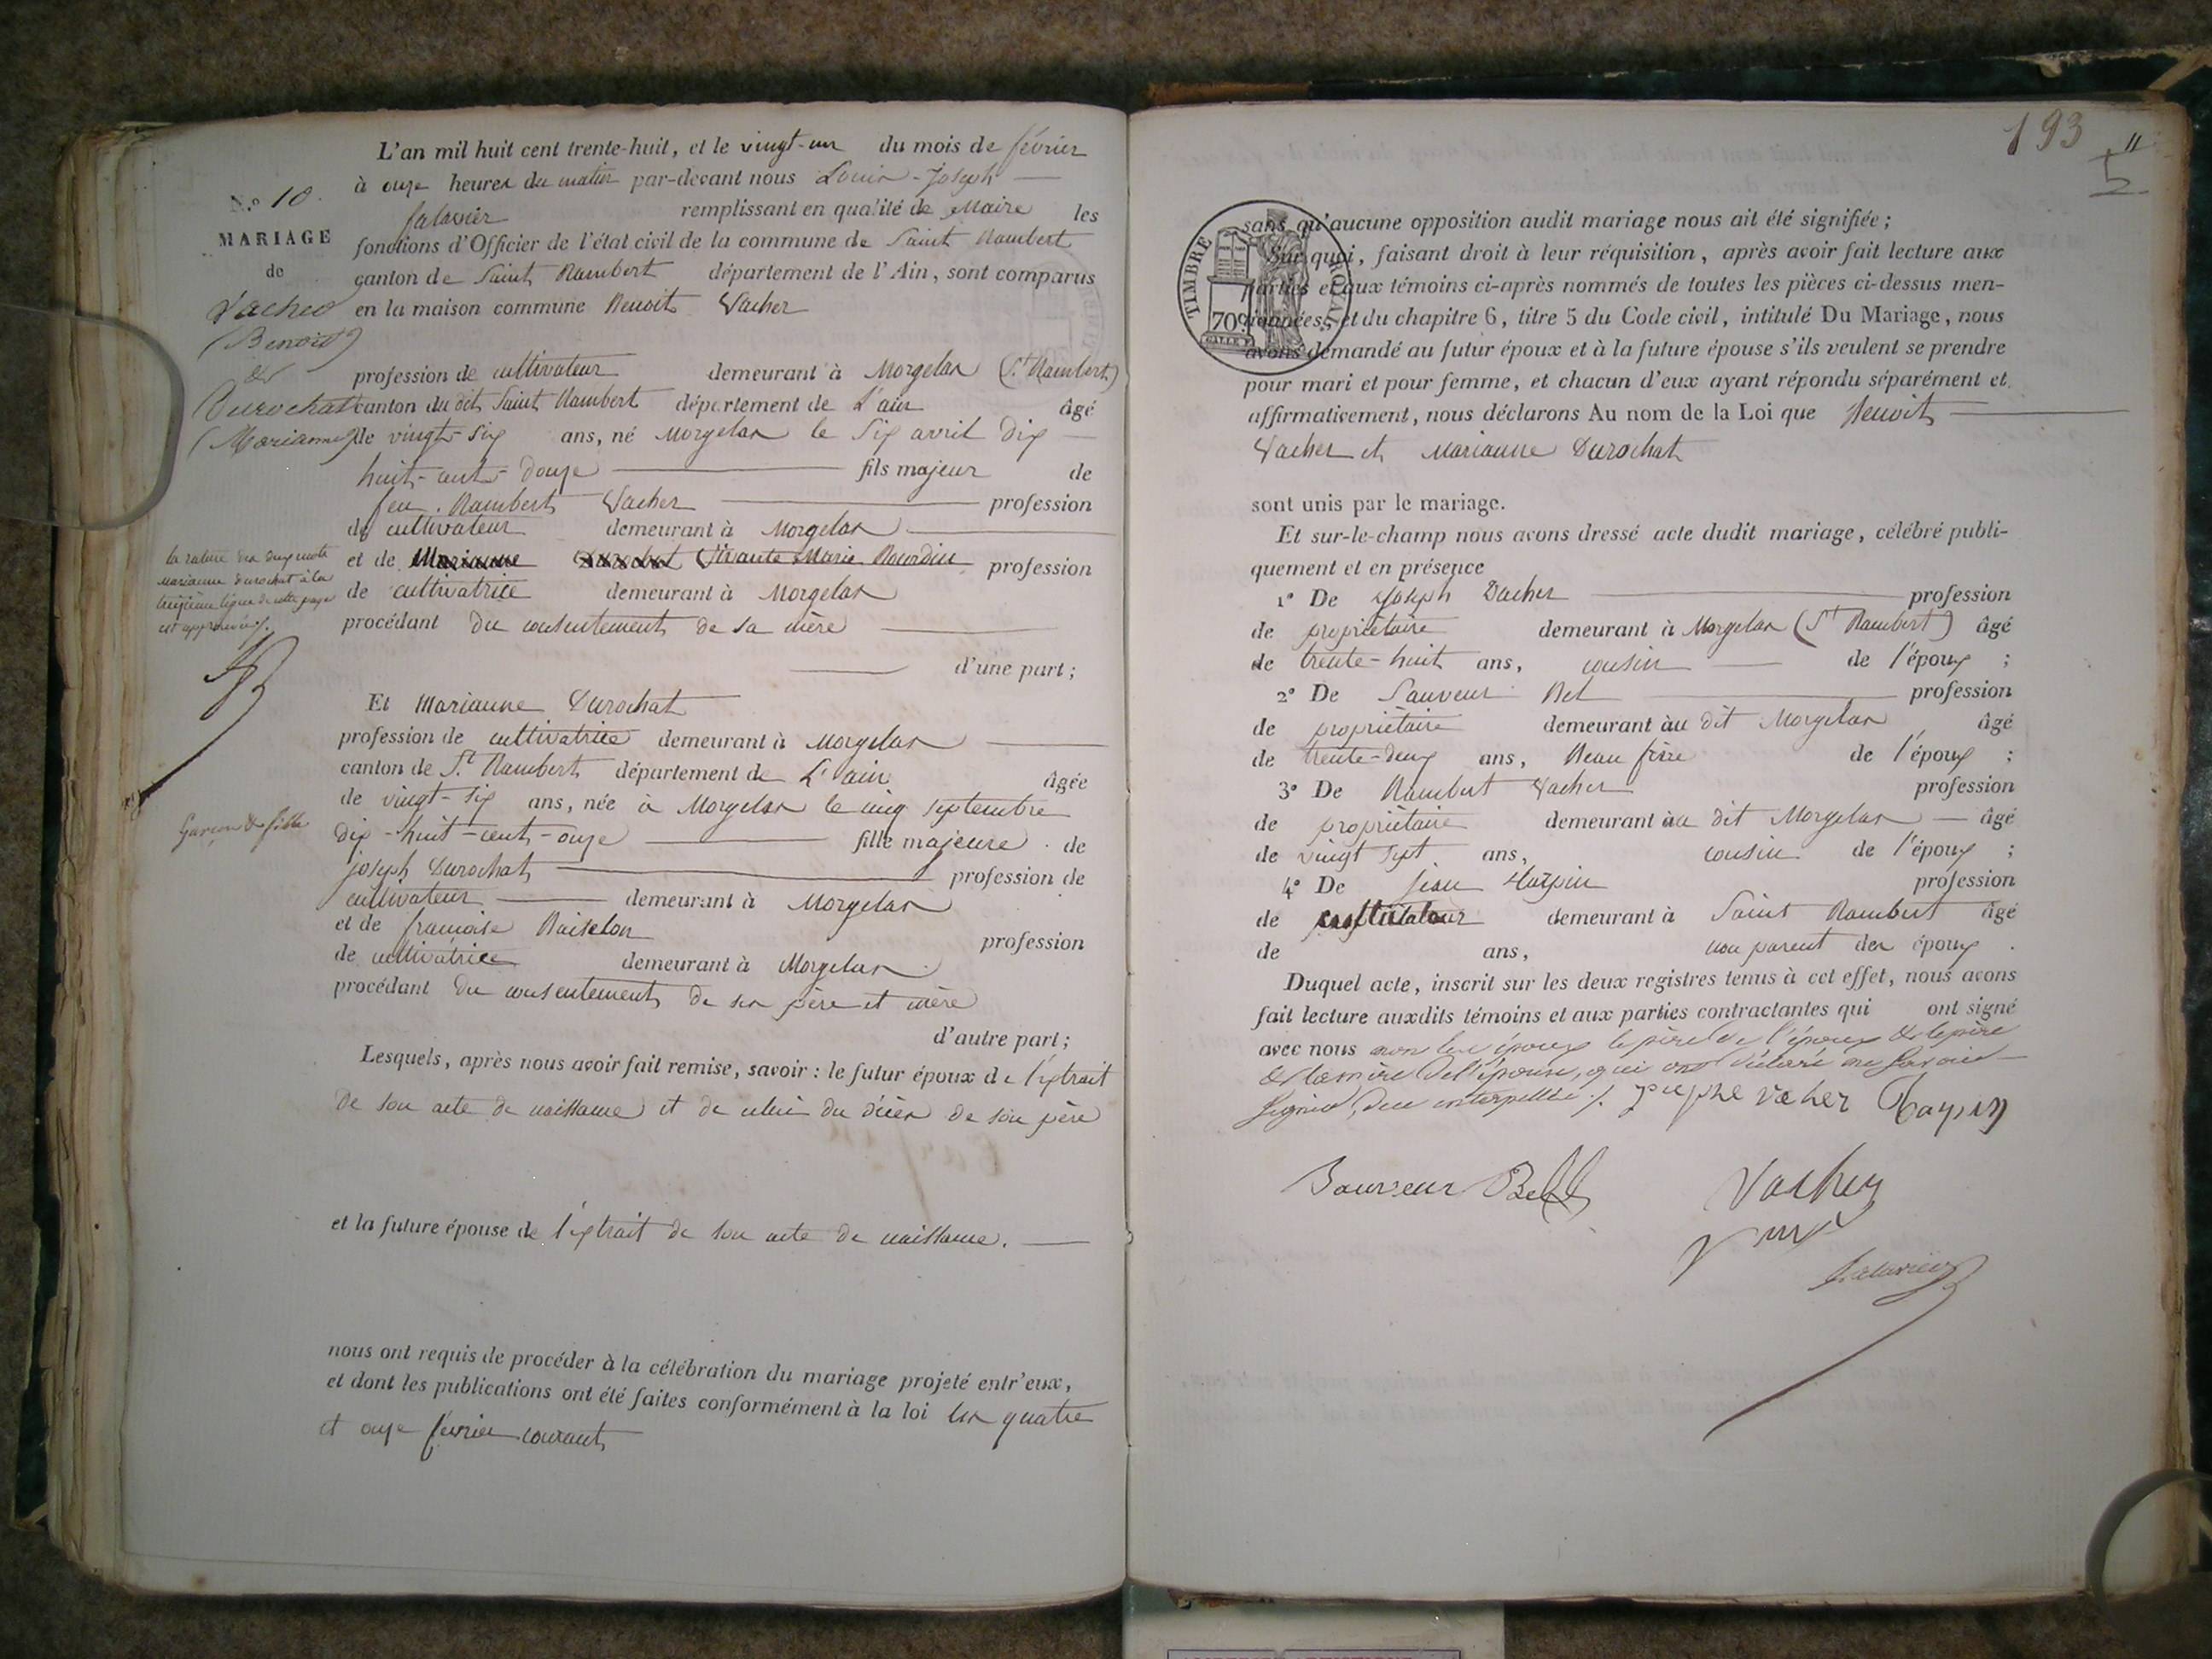 L'an mil huit cent trente-huit, et le vingt-un du mois de février
à onze heures du matin par-devant nous Louis-Joseph
remplissant en qualité de Maire les
fonctions d'Officier de l'état civil de la commune de Saint Rambert
canton de Saint Rambert département de l'Ain, sont comparus
en la maison commune Benoit Vacher
N.º 10.
MARIAGE
de
Vacher
(Benoit)
&
Durochat
(Marianne)
profession de cultivateur demeurant à Morgelas (St. Rambert)
canton du dit Saint Rambert département de L'ain âgé
de vingt-six ans, né Morgelas le six avril dix
huit-cent-douze fils majeur de
feu Rambert Vacher profession
de cultivateur demeurant à Morgelas
et de Marianne Durochat vivante Marie Bourdin profession
de cultivatrice demeurant à Morgelas
procédant du consentement de sa mère
d'une part;
la rature des deux mots
marianne durochat à la
treizième ligne de cette page
est approuvée
Et Marianne Durochat
profession de cultivatrice demeurant à Morgelas
canton de St. Rambert département de L'ain âgée
de vingt-six ans, née à Morgelas le cinq septembre
dix-huit-cent-onze fille majeure de
Garçon & fille
joseph Durochat profession de
cultivateur demeurant à Morgelas
et de françoise profession
de cultivatrice demeurant à Morgelas
procédant du consentement de ses père et mère
d'autre part;
Lesquels, après nous avoir fait remise, savoir: le futur époux de l'extrait
de son acte de naissance et de celui du décès de son père
et la future épouse de l'extrait de son acte de naissance.
nous ont requis de procéder à la célébration du mariage projeté entr'eux,
et dont les publications ont été faites conformément à la loi les quatre
et onze février courant
193
11
TIMBRE ROYAL
70c
sans qu'aucune opposition audit mariage nous ait été signifiée;
Sur quoi, faisant droit à leur réquisition, après avoir fait lecture aux
parties et aux témoins ci-après nommés de toutes les pièces ci-dessus men-
tionnées, et du chapitre 6, titre 5 du Code civil, intitulé Du Mariage, nous
avons demandé au futur époux et à la future épouse s'ils veulent se prendre
pour mari et pour femme, et chacun d'eux ayant répondu séparément et
affirmativement, nous déclarons Au nom de la Loi que Benoit
Vacher et Marianne Durochat
sont unis par le mariage.
Et sur-le-champ nous avons dressé acte dudit mariage, célébré publi-
quement et en présence
1º De Joseph Vacher profession
de propriétaire demeurant à Morgelas (St Rambert) âgé
de trente-huit ans, cousin de l'époux;
2º De Sauveur Bel profession
de propriétaire demeurant àu dit Morgelas âgé
de trente-deux ans, Beau frère de l'époux;
3º De Rambert Vacher profession
de propriétaire demeurant àu dit Morgelas âgé
de vingt sept ans, cousin de l'époux;
4º De Jean profession
de demeurant à Saint Rambert âgé
de ans, non parent des époux.
Duquel acte, inscrit sur les deux registres tenus à cet effet, nous avons
fait lecture auxdits témoins et aux parties contractantes qui ont signé
avec nous non les époux le père de l'époux & le père
& la mère de l'épouse, qui ont déclaré ne savoir
signer, de ce interpellés. josephe vacher
Sauveur Bel
Vacher